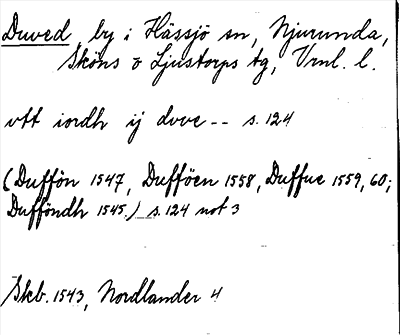 Duved by i Hässjö sn, Njurunda,
Sköns o Ljustorps tg, Vrnl. l.
vtt iordh ij dvve -- s. 124
(Duffön 1547, Dufföen 1558, Duffue 1559, 60;
Dufföndh 1545.) s. 124 not 3
Skb. 1543, Nordlander 4